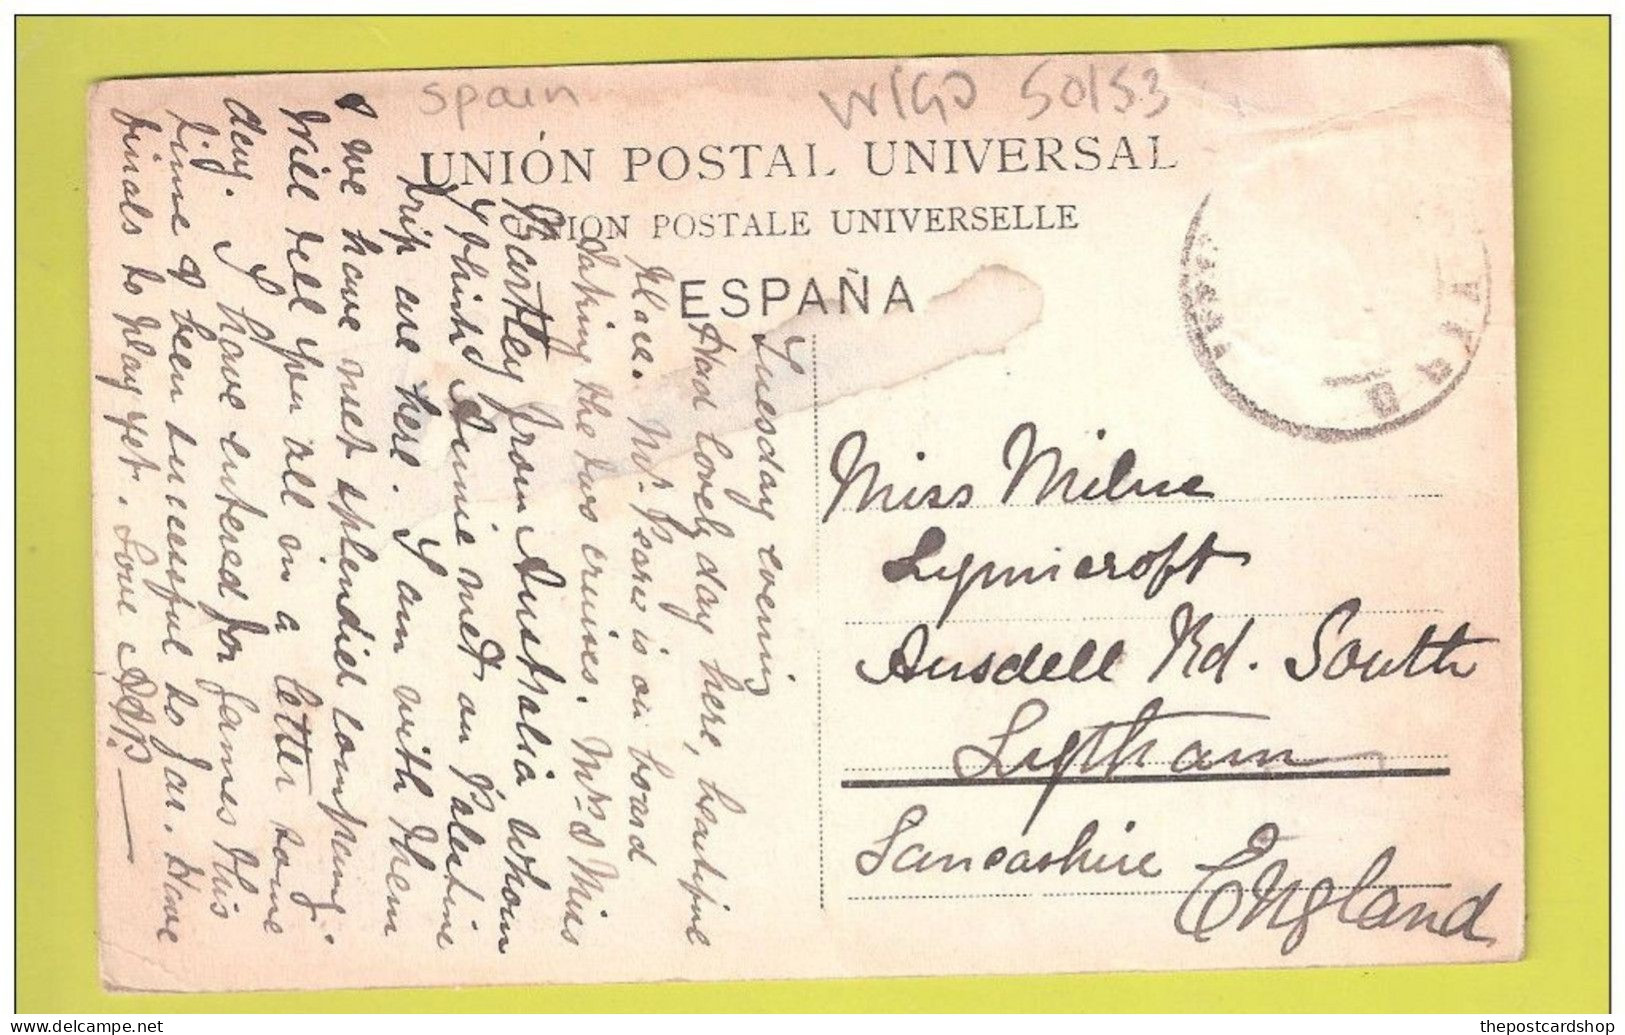 Spain
VIGO 50153
UNIÓN POSTAL UNIVERSAL
UNION POSTALE UNIVERSELLE
ESPAÑA
Tuesday evening
Had lovely day here, beautiful
place. Mr Pearce is on board
taking the two cruises. Mrs & Miss
Bartley from Australia whom
I think Annie met on Palestine
trip are here. I am with them
& we have met splendid company.
Will tell you all in a letter some
day. I have entered for games this
time & been successful so far. Have
finals to play yet. Love
Miss Milne
Lynncroft
Ansdell Rd. South
Lytham
Lancashire
England
thepostcardshop